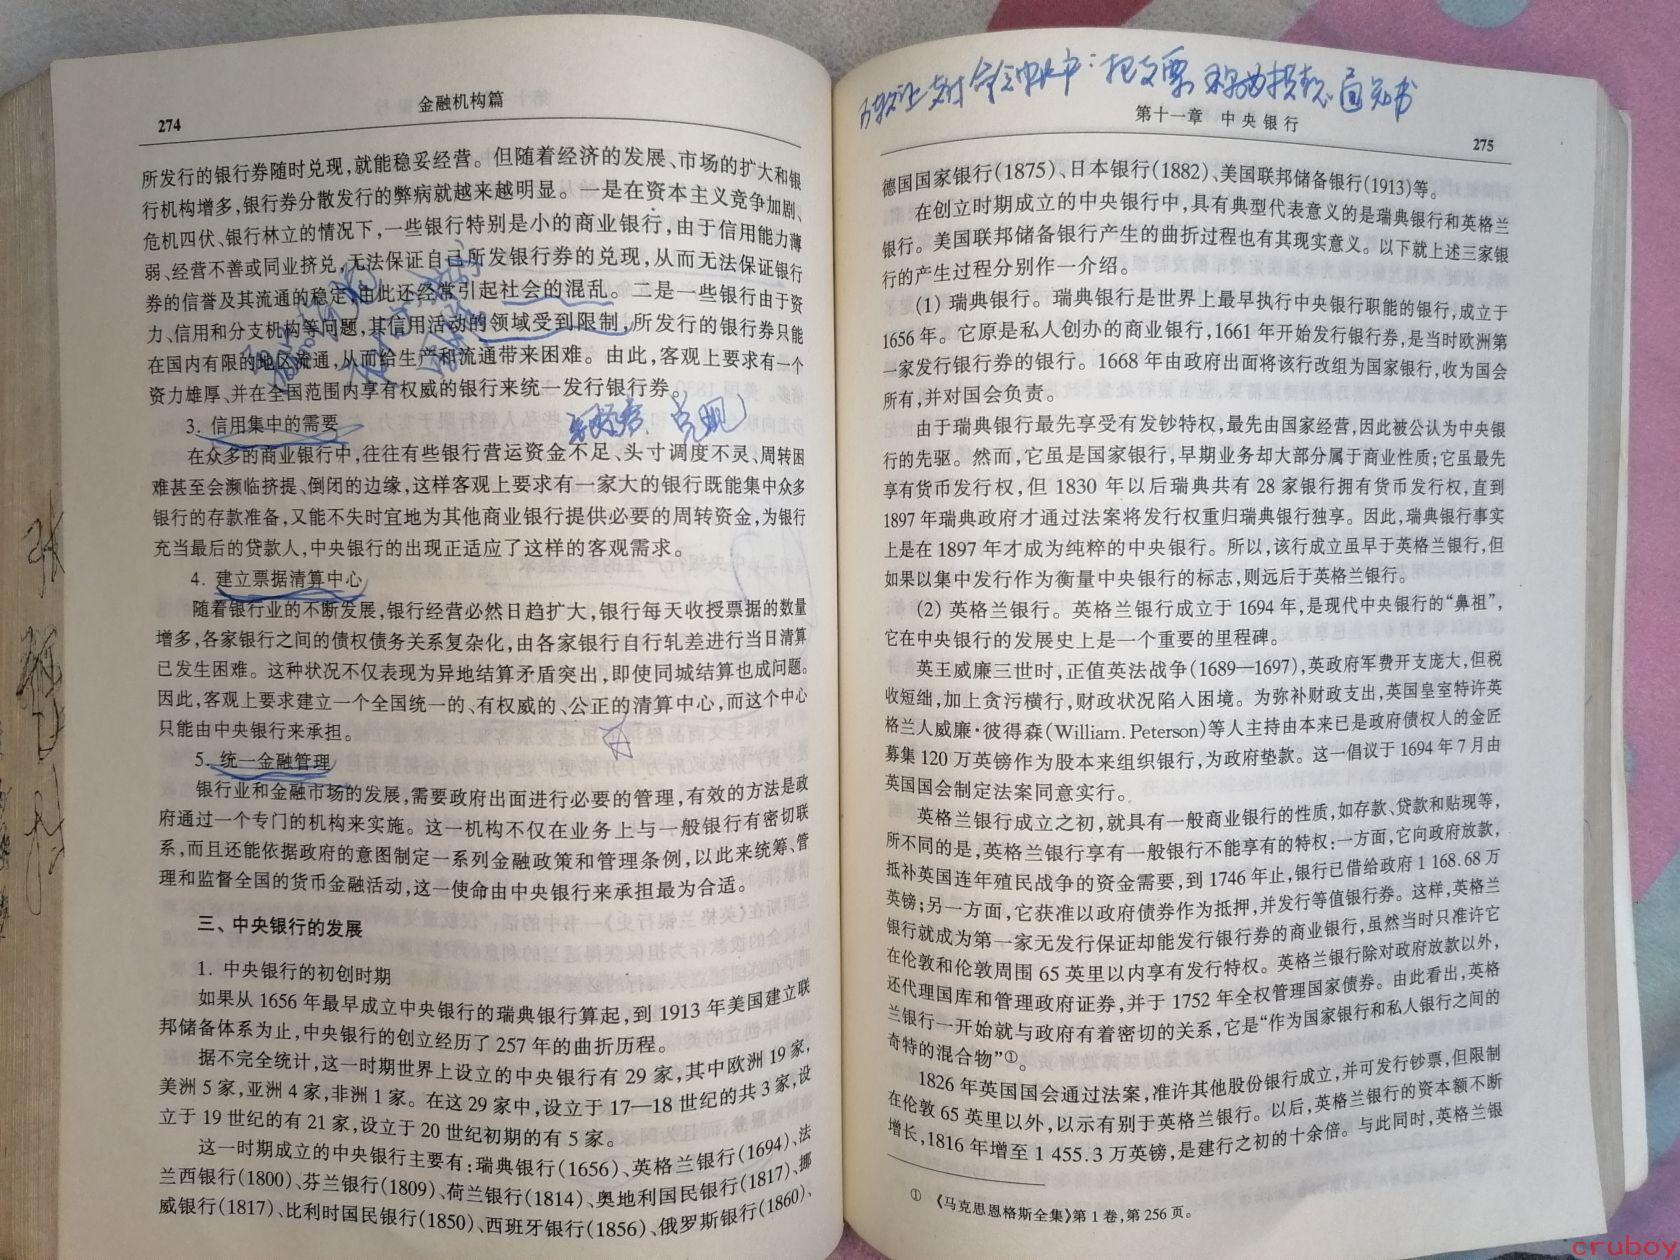 274
金融机构篇
所发行的银行券随时兑现,就能稳妥经营。但随着经济的发展、市场的扩大和银
行机构增多,银行券分散发行的弊病就越来越明显。一是在资本主义竞争加剧、
危机四伏、银行林立的情况下,一些银行特别是小的商业银行,由于信用能力薄
弱、经营不善或同业挤兑,无法保证自己所发银行券的兑现,从而无法保证银行
券的信誉及其流通的稳定,由此还经常引起社会的混乱。二是一些银行由于资
力、信用和分支机构等问题,其信用活动的领域受到限制,所发行的银行券只能
在国内有限的地区流通,从而给生产和流通带来困难。由此,客观上要求有一个
资力雄厚、并在全国范围内享有权威的银行来统一发行银行券。
兑现
3. 信用集中的需要
在众多的商业银行中,往往有些银行营运资金不足、头寸调度不灵、周转困
难甚至会濒临挤提、倒闭的边缘,这样客观上要求有一家大的银行既能集中众多
银行的存款准备,又能不失时宜地为其他商业银行提供必要的周转资金,为银行
充当最后的贷款人,中央银行的出现正适应了这样的客观需求。
4. 建立票据清算中心
随着银行业的不断发展,银行经营必然日趋扩大,银行每天收授票据的数量
增多,各家银行之间的债权债务关系复杂化,由各家银行自行轧差进行当日清算
已发生困难。这种状况不仅表现为异地结算矛盾突出,即使同城结算也成问题。
因此,客观上要求建立一个全国统一的、有权威的、公正的清算中心,而这个中心
只能由中央银行来承担。
5. 统一金融管理
银行业和金融市场的发展,需要政府出面进行必要的管理,有效的方法是政
府通过一个专门的机构来实施。这一机构不仅在业务上与一般银行有密切联
系,而且还能依据政府的意图制定一系列金融政策和管理条例,以此来统筹、管
理和监督全国的货币金融活动,这一使命由中央银行来承担最为合适。
三、中央银行的发展
1. 中央银行的初创时期
如果从 1656 年最早成立中央银行的瑞典银行算起,到 1913 年美国建立联
邦储备体系为止,中央银行的创立经历了 257 年的曲折历程。
据不完全统计,这一时期世界上设立的中央银行有 29 家,其中欧洲 19 家,
美洲 5 家,亚洲 4 家,非洲 1 家。在这 29 家中,设立于 17—18 世纪的共 3 家,设
立于 19 世纪的有 21 家,设立于 20 世纪初期的有 5 家。
这一时期成立的中央银行主要有:瑞典银行(1656)、英格兰银行(1694)、法
兰西银行(1800)、芬兰银行(1809)、荷兰银行(1814)、奥地利国民银行(1817)、挪
威银行(1817)、比利时国民银行(1850)、西班牙银行(1856)、俄罗斯银行(1860)、
把支票 通知书
第十一章 中央银行
275
德国国家银行(1875)、日本银行(1882)、美国联邦储备银行(1913)等。
在创立时期成立的中央银行中,具有典型代表意义的是瑞典银行和英格兰
银行。美国联邦储备银行产生的曲折过程也有其现实意义。以下就上述三家银
行的产生过程分别作一介绍。
(1) 瑞典银行。瑞典银行是世界上最早执行中央银行职能的银行,成立于
1656 年。它原是私人创办的商业银行,1661 年开始发行银行券,是当时欧洲第
一家发行银行券的银行。1668 年由政府出面将该行改组为国家银行,收为国会
所有,并对国会负责。
由于瑞典银行最先享受有发钞特权,最先由国家经营,因此被公认为中央银
行的先驱。然而,它虽是国家银行,早期业务却大部分属于商业性质;它虽最先
享有货币发行权,但 1830 年以后瑞典共有 28 家银行拥有货币发行权,直到
1897 年瑞典政府才通过法案将发行权重归瑞典银行独享。因此,瑞典银行事实
上是在 1897 年才成为纯粹的中央银行。所以,该行成立虽早于英格兰银行,但
如果以集中发行作为衡量中央银行的标志,则远后于英格兰银行。
(2) 英格兰银行。英格兰银行成立于 1694 年,是现代中央银行的“鼻祖”,
它在中央银行的发展史上是一个重要的里程碑。
英王威廉三世时,正值英法战争(1689—1697),英政府军费开支庞大,但税
收短绌,加上贪污横行,财政状况陷入困境。为弥补财政支出,英国皇室特许英
格兰人威廉·彼得森(William. Peterson)等人主持由本来已是政府债权人的金匠
募集 120 万英镑作为股本来组织银行,为政府垫款。这一倡议于 1694 年 7 月由
英国国会制定法案同意实行。
英格兰银行成立之初,就具有一般商业银行的性质,如存款、贷款和贴现等,
所不同的是,英格兰银行享有一般银行不能享有的特权:一方面,它向政府放款,
抵补英国连年殖民战争的资金需要,到 1746 年止,银行已借给政府 1 168.68 万
英镑;另一方面,它获准以政府债券作为抵押,并发行等值银行券。这样,英格兰
银行就成为第一家无发行保证却能发行银行券的商业银行,虽然当时只准许它
在伦敦和伦敦周围 65 英里以内享有发行特权。英格兰银行除对政府放款以外,
还代理国库和管理政府证券,并于 1752 年全权管理国家债券。由此看出,英格
兰银行一开始就与政府有着密切的关系,它是“作为国家银行和私人银行之间的
奇特的混合物”①。
1826 年英国国会通过法案,准许其他股份银行成立,并可发行钞票,但限制
在伦敦 65 英里以外,以示有别于英格兰银行。以后,英格兰银行的资本额不断
增长,1816 年增至 1 455.3 万英镑,是建行之初的十余倍。与此同时,英格兰银
① 《马克思恩格斯全集》第 1 卷,第 256 页。
cruboy